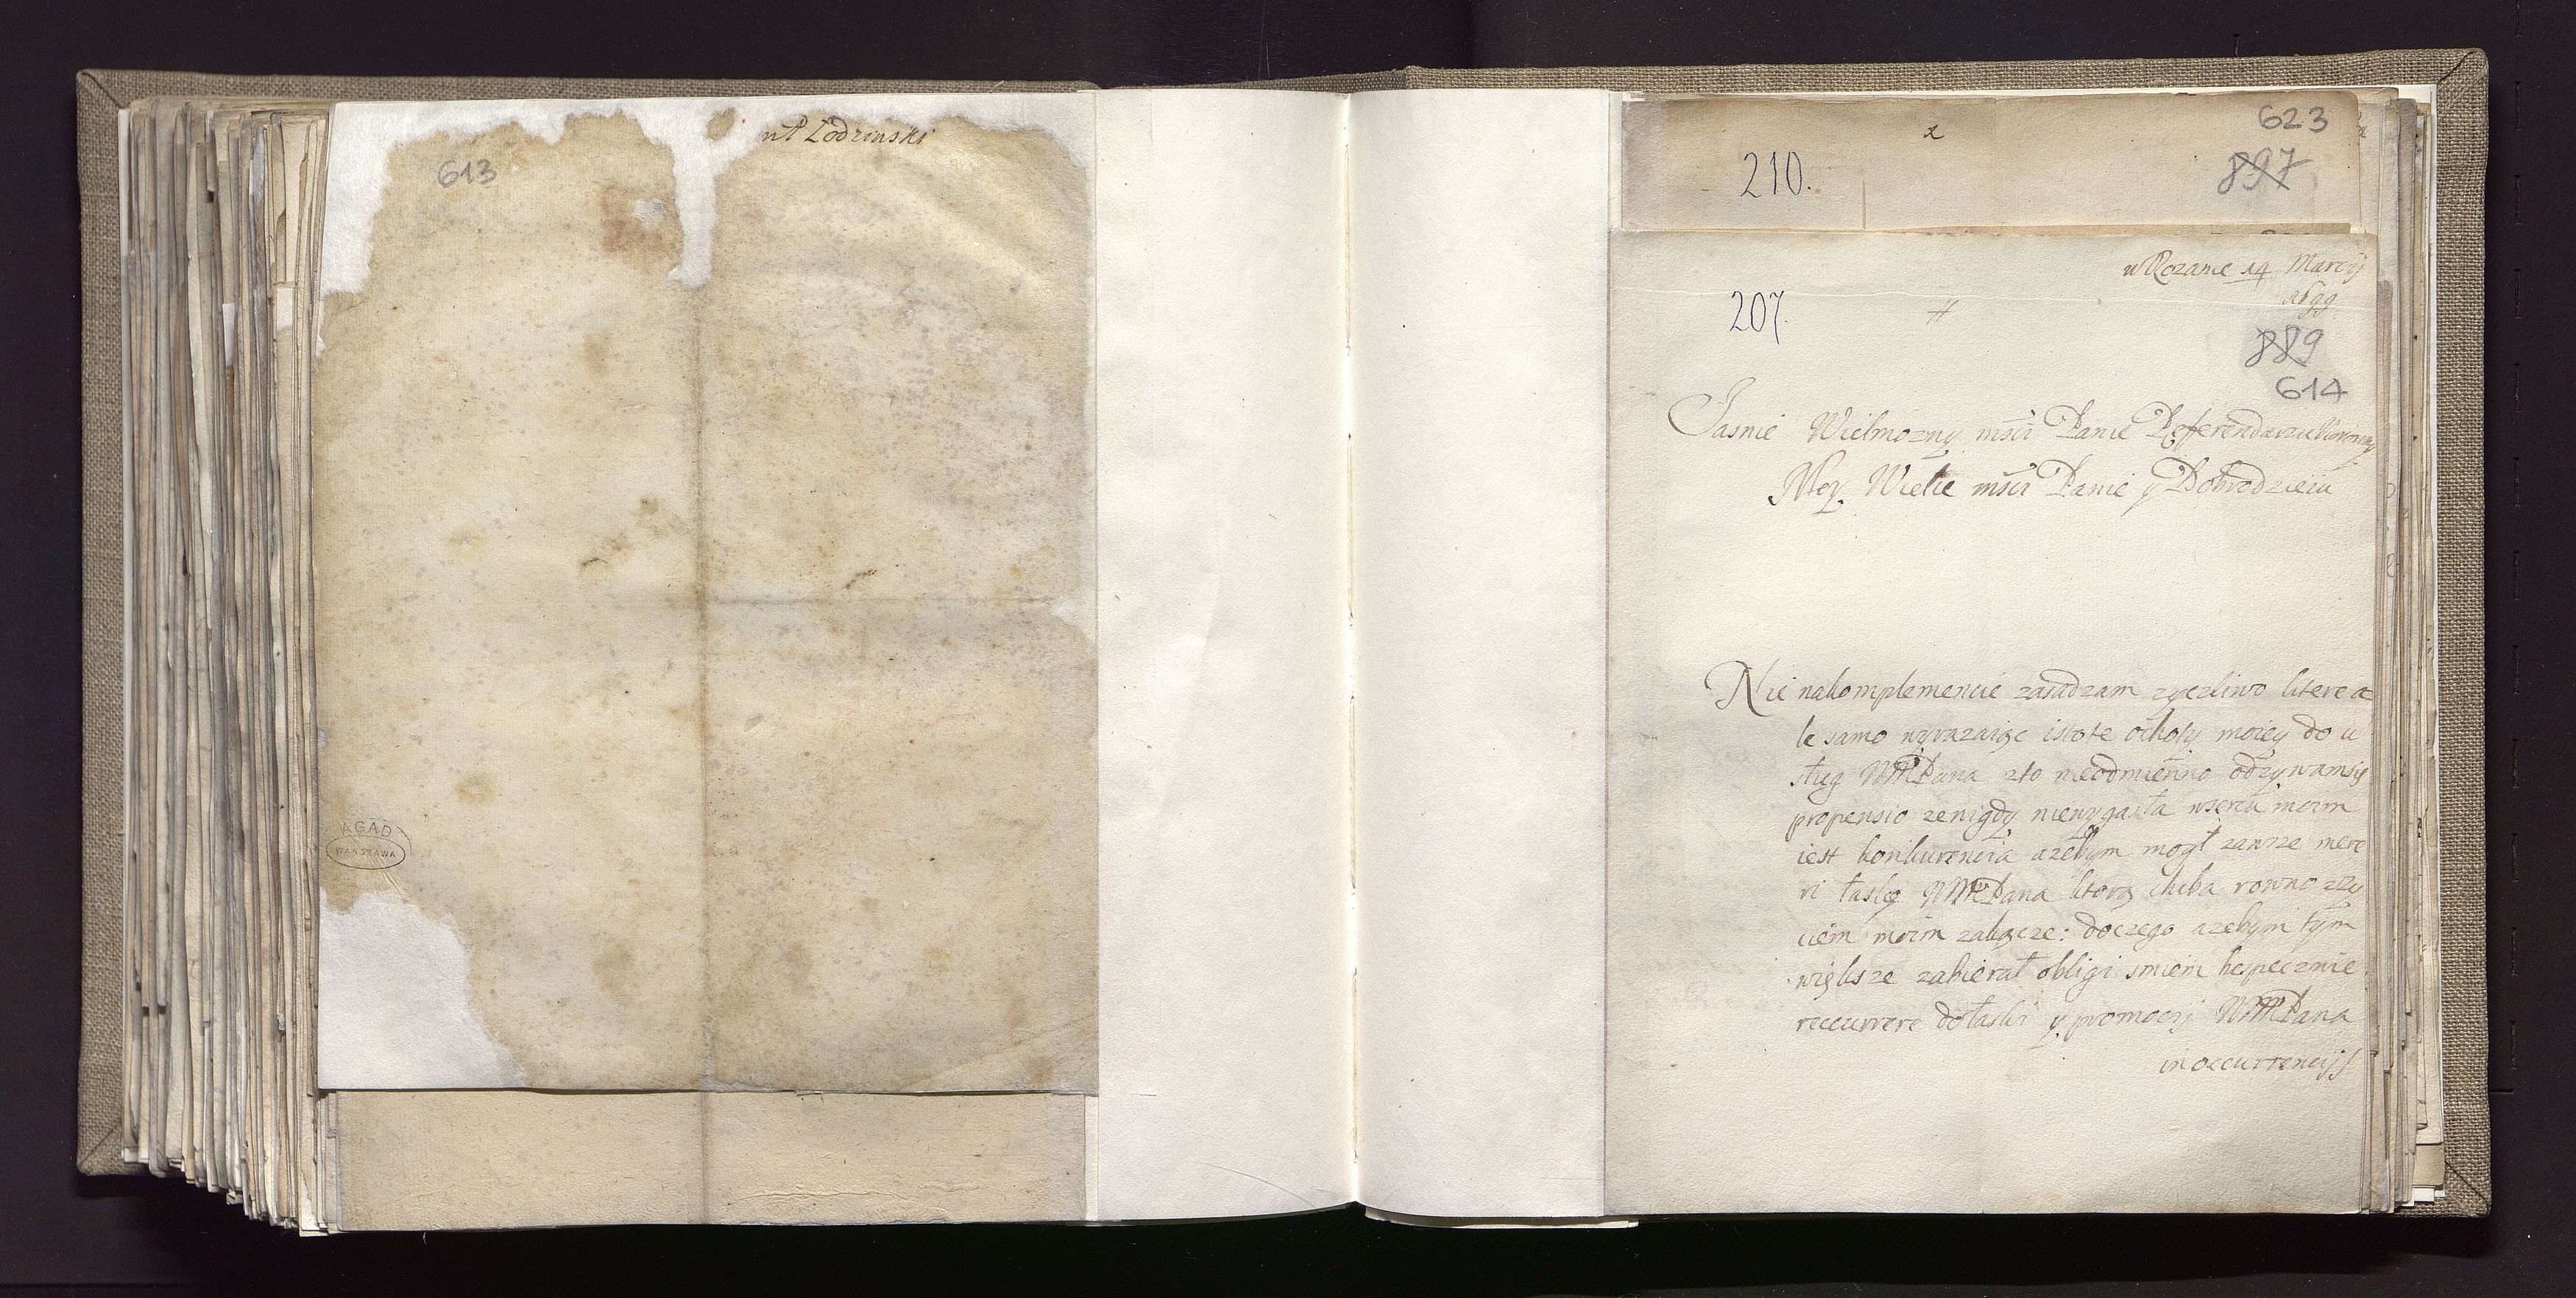 613
uP Zodzinski
AGAD
WARSZAWA
623
210.
897
w Rozanie 14 Marcij
207.
889
614
Jasnie Wielmozny msci Panie Referendarzu Koronny
Moy Wielce msci Panie y Dobrodzieiu
Nie nakomplemencie zasadzam zyczliwo litere a
le samo wyrazaiąc istote ochoty moiey do u
sług WMPana zto nieodmienno odzywamsię
propensio zenigdy niewygasła wsercu moim
iest konkurencia azebym mogł zawsze mere
ri łaskę WMPana ktorą chiba rowno zzy
ciem moim zakącze: doczego azebym tym
większe zabierał obligi smiem bespecznie
reccurrere dołaski y promocij WMPana
in occurrencijs